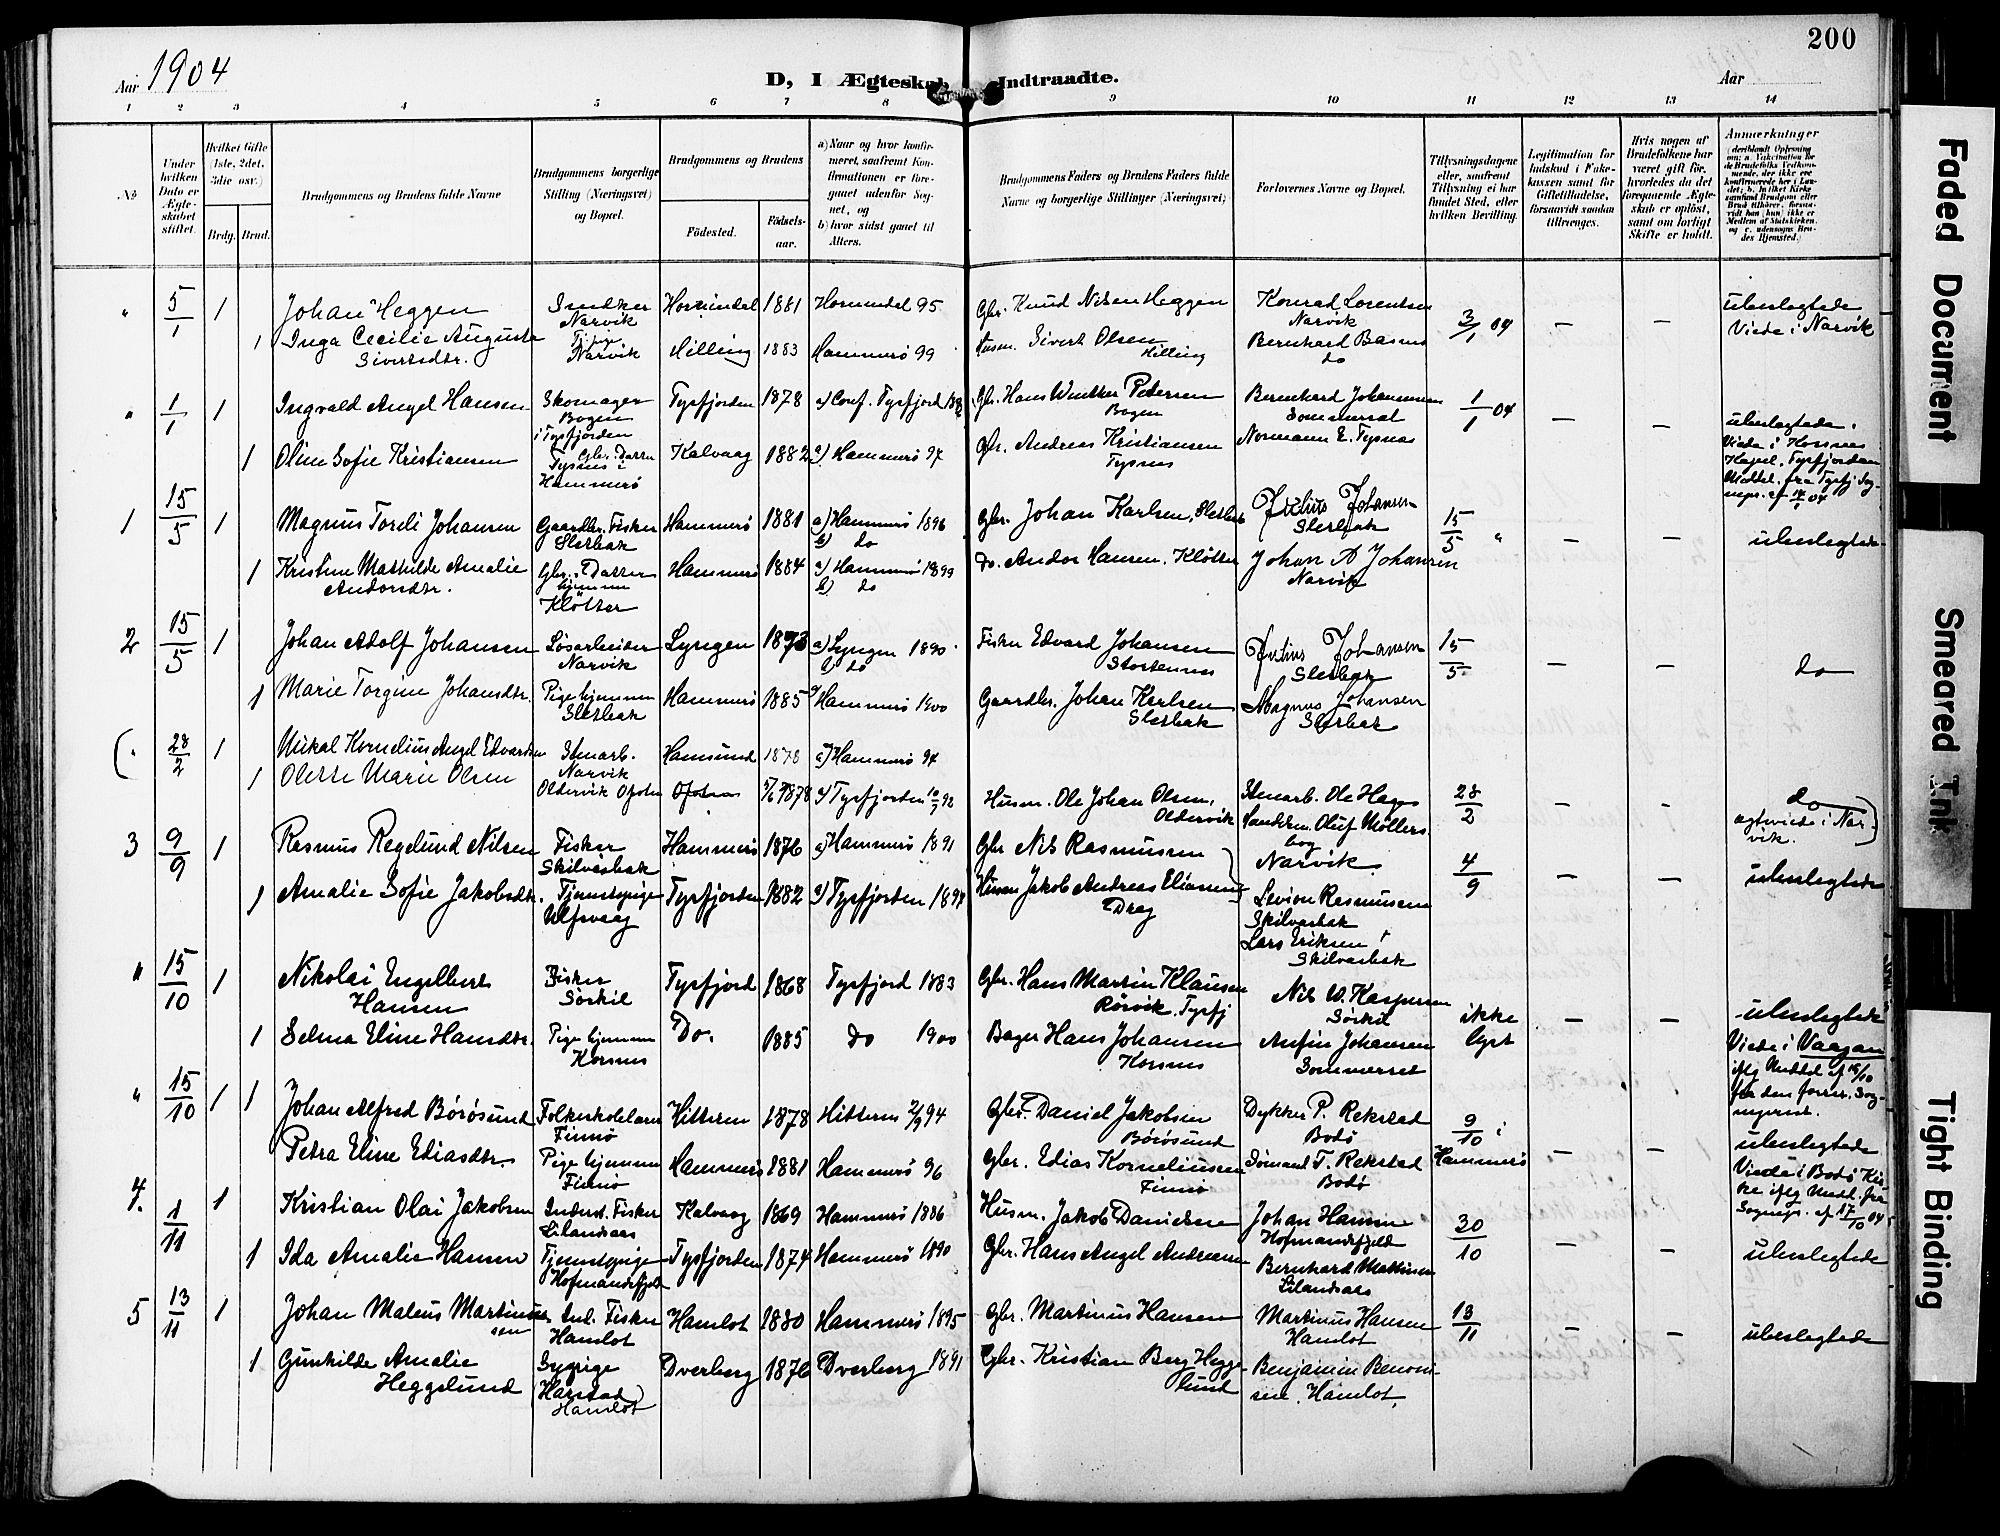 200
Aar 1904
D, I Ægteskab Indtraadte.
Aar
1 2 3 4 5 6 7 8 9 10 11 12 13 14
No
Under hvilken Dato er Ægteskabet stiftet.
Hvilket Gifte (1ste, 2det, 3die osv.)
Brdg. Brud.
Brudgommens og Brudens fulde Navne
Brudgommens borgerlige Stilling (Næringsvei) og Bopæl.
Brudgommens og Brudens
Födested.
Födselsaar.
a) Naar og hvor konfirmeret, saafremt Konfirmationen er foregaaet udenfor Sognet, og
b) hvor sidst gaaet til Alters.
Brudgommens Faders og Brudens Faders fulde Navne og borgerlige Stillinger (Næringsvei)
Forlovernes Navne og Bopæl.
Tillysningsdagene eller, saafremt Tillysning ei har fundet Sted, efter hvilken Bevilling.
Legitimation for Indskud i Enkekassen samt for Giftetilladelse, forsaavidt saadan tiltrænges.
Hvis nogen af Brudefolkene har været gift før, hvorledes da det foregaaende Ægteskab er opløst, samt om lovligt Skifte er holdt.
Anmerkninger
" 5/1 1 Johan Heggen Snedker Narvik Hornindal 1881 Hornindal 95 Gbr. Knud Nilsen Heggen Konrad Lorentsen Narvik 3/1 04 — — ubeslegtede Viede i Narvik
1 Inga Cecilie Auguste Sivertsdtr. Narvik Hilling 1883 Hammerö 99 Husm. Sivert Olsen Hilling Bernhard do
" 1/1 1 Ingvald Angel Hansen Skomager Bogen i Tysfjorden Tysfjorden 1878 a) Conf. Tysfjord Gbr. Hans Winther Pedersen Bogen Bernhard Johannesen Sommerset 1/1 04 — — ubeslegtede. Viede i Korsnes Kapel, Tysfjorden
1 Oline Sofie Kristiansen Tysnes i Hammerö Kalvaag 1882 a) Hammerö 97 Gbr. Andreas Kristiansen Tysnes Normann E. Tysnes
1 15/5 1 Magnus Tordi Johansen Gaardbr. Fisker Slesbak Hammerö 1881 a) Hammerö 1896 b) do Gbr. Johan Karlsen, Slesbak Julius Johansen Slesbak 15/5 " — — ubeslegtede
1 Kristine Mathilde Amalie Andorsdtr. Gbr. Datter hjemme Klötter Hammerö 1884 a) Hammerö 1899 b) do do. Andor Hansen, Klötter Johan A Johansen Narvik
2 15/5 1 Johan Adolf Johansen Lösarbeider Narvik Lyngen 1873 a) Lyngen 1890 b) do Fisker Edvard Johansen Storstennes Julius Johansen Slesbak 15/5 — — do
1 Marie Torgine Johansdtr. Pige hjemme Slesbak Hammerö 1885 a) Hammerö 1900 Gaardbr. Johan Karlsen Slesbak Magnus Johansen Slesbak
( " 28/2 1 Mikal Kornelius Angel Edvardsen Stenarb. Narvik Hamsund 1878 a) Hammerö 94
1 Olette Marie Olsen Oldervik Ofoten Ofoten 1878 a) Tysfjorden 92 Husm. Ole Johan Olsen, Oldervik Stenarb. Ole Hagen Oluf Möllersbog Narvik 28/2 — — do egteviede i Narvik. )
3 9/9 1 Rasmus Regelund Nilsen Fisker Skilvasbak Hammerö 1876 a) Hammerö 1891 Gbr Nils Rasmussen 4/9 — — ubeslegtede
1 Amalie Sofie Jakobsdtr. Tjenestepige Ulfsvaag Tysfjorden 1882 a) Tysfjorden 1897 Husm Jakob Andreas Eliassen Drag Levion Rasmussen Skilvasbak Lars Eriksen Skilvasbak
" 15/10 1 Nikolai Engelbert Hansen Fisker Sörkil Tysfjord 1868 Tysfjord 1883 Gbr. Hans Martin Klausen Rörvik, Tysfj Nils W. Kaspersen Sörkil ikke lyst — — ubeslegtede Viede i Vaagan iflg Meddel af 18/10
1 Selma Eline Hansdtr. Pige hjemme Korsnes Do. 1885 do 1900 Bager Hans Johansen Korsnes Anfin Johansen Sommerset
" 15/10 1 1 Johan Alfred Börösund Folkeskolelærer Finnö Hitteren 1878 Hitteren 2/9 94 Gbr. Daniel Jakobsen Börösund Dykker P. Rekstad Bodö 9/10 i Hammerö — — ubeslegtede Viede i Bodö Kirke iflg Medd. fra Sognepr. af 17/10 04
Petra Eline Ediasdtr. Pige hjemme Finnö Hammerö 1881 Hammerö 96 Gbr. Edias Korneliussen Finnö Sömand T. Rekstad Bodö
4. 1/11 1 Kristian Olai Jakobsen Inderst. Fisker Lilandsaas Kalvaag 1869 Hammerö 1886 Husm. Jakob Danielsen Johan Hansen Hofmandsfjeld 30/10 — — ubeslegtede
1 Ida Amalie Hansen Tjenestepige Hofmandsfjeld Tysfjorden 1874 Hammerö 1890 Gbr. Hans Angel Andreassen Bernhard Mathisen Lilandsaas
5 13/11 1 Johan Mateus Martinussen Ind. Fisker Hamlot Hamlot 1880 Hammerö 1895 Gbr. Martinus Hansen Martinus Hansen Hamlot 13/11 — — ubeslegtede
1 Gunhilde Amalie Heggelund Sypige (Harstad) Hamlot Dverberg 1876 Dverberg 1891 Gbr. Kristian Berg Heggelund Benjamin Benonisen, Hamlot.
Faded Document
Smeared Ink
Tight Binding